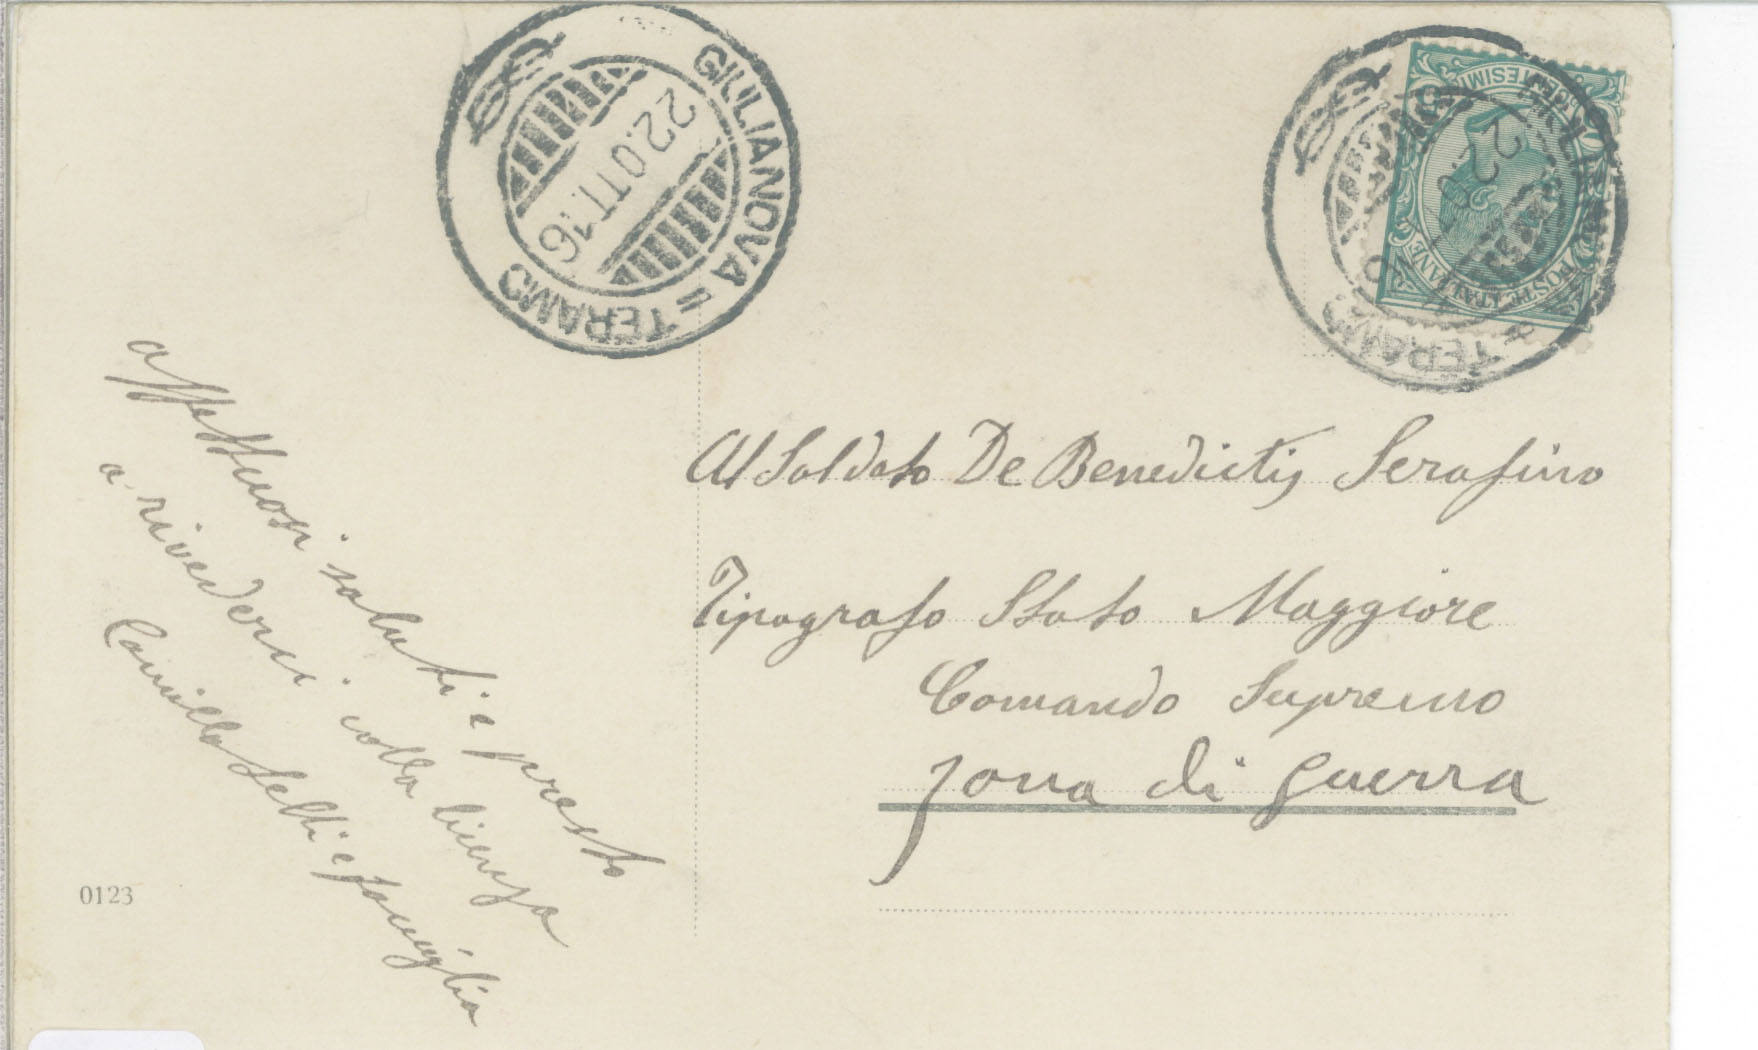 GIULIANOVA = TERAMO
22.OTT.16
POSTE ITALIANE
TERAMO
affettuosi saluti e presto
a rivederci colla licenza
Camillo Lelli e famiglia
Al Soldato De Benedictis Serafino
Tipografo Stato Maggiore
Comando Supremo
Zona di guerra
0123